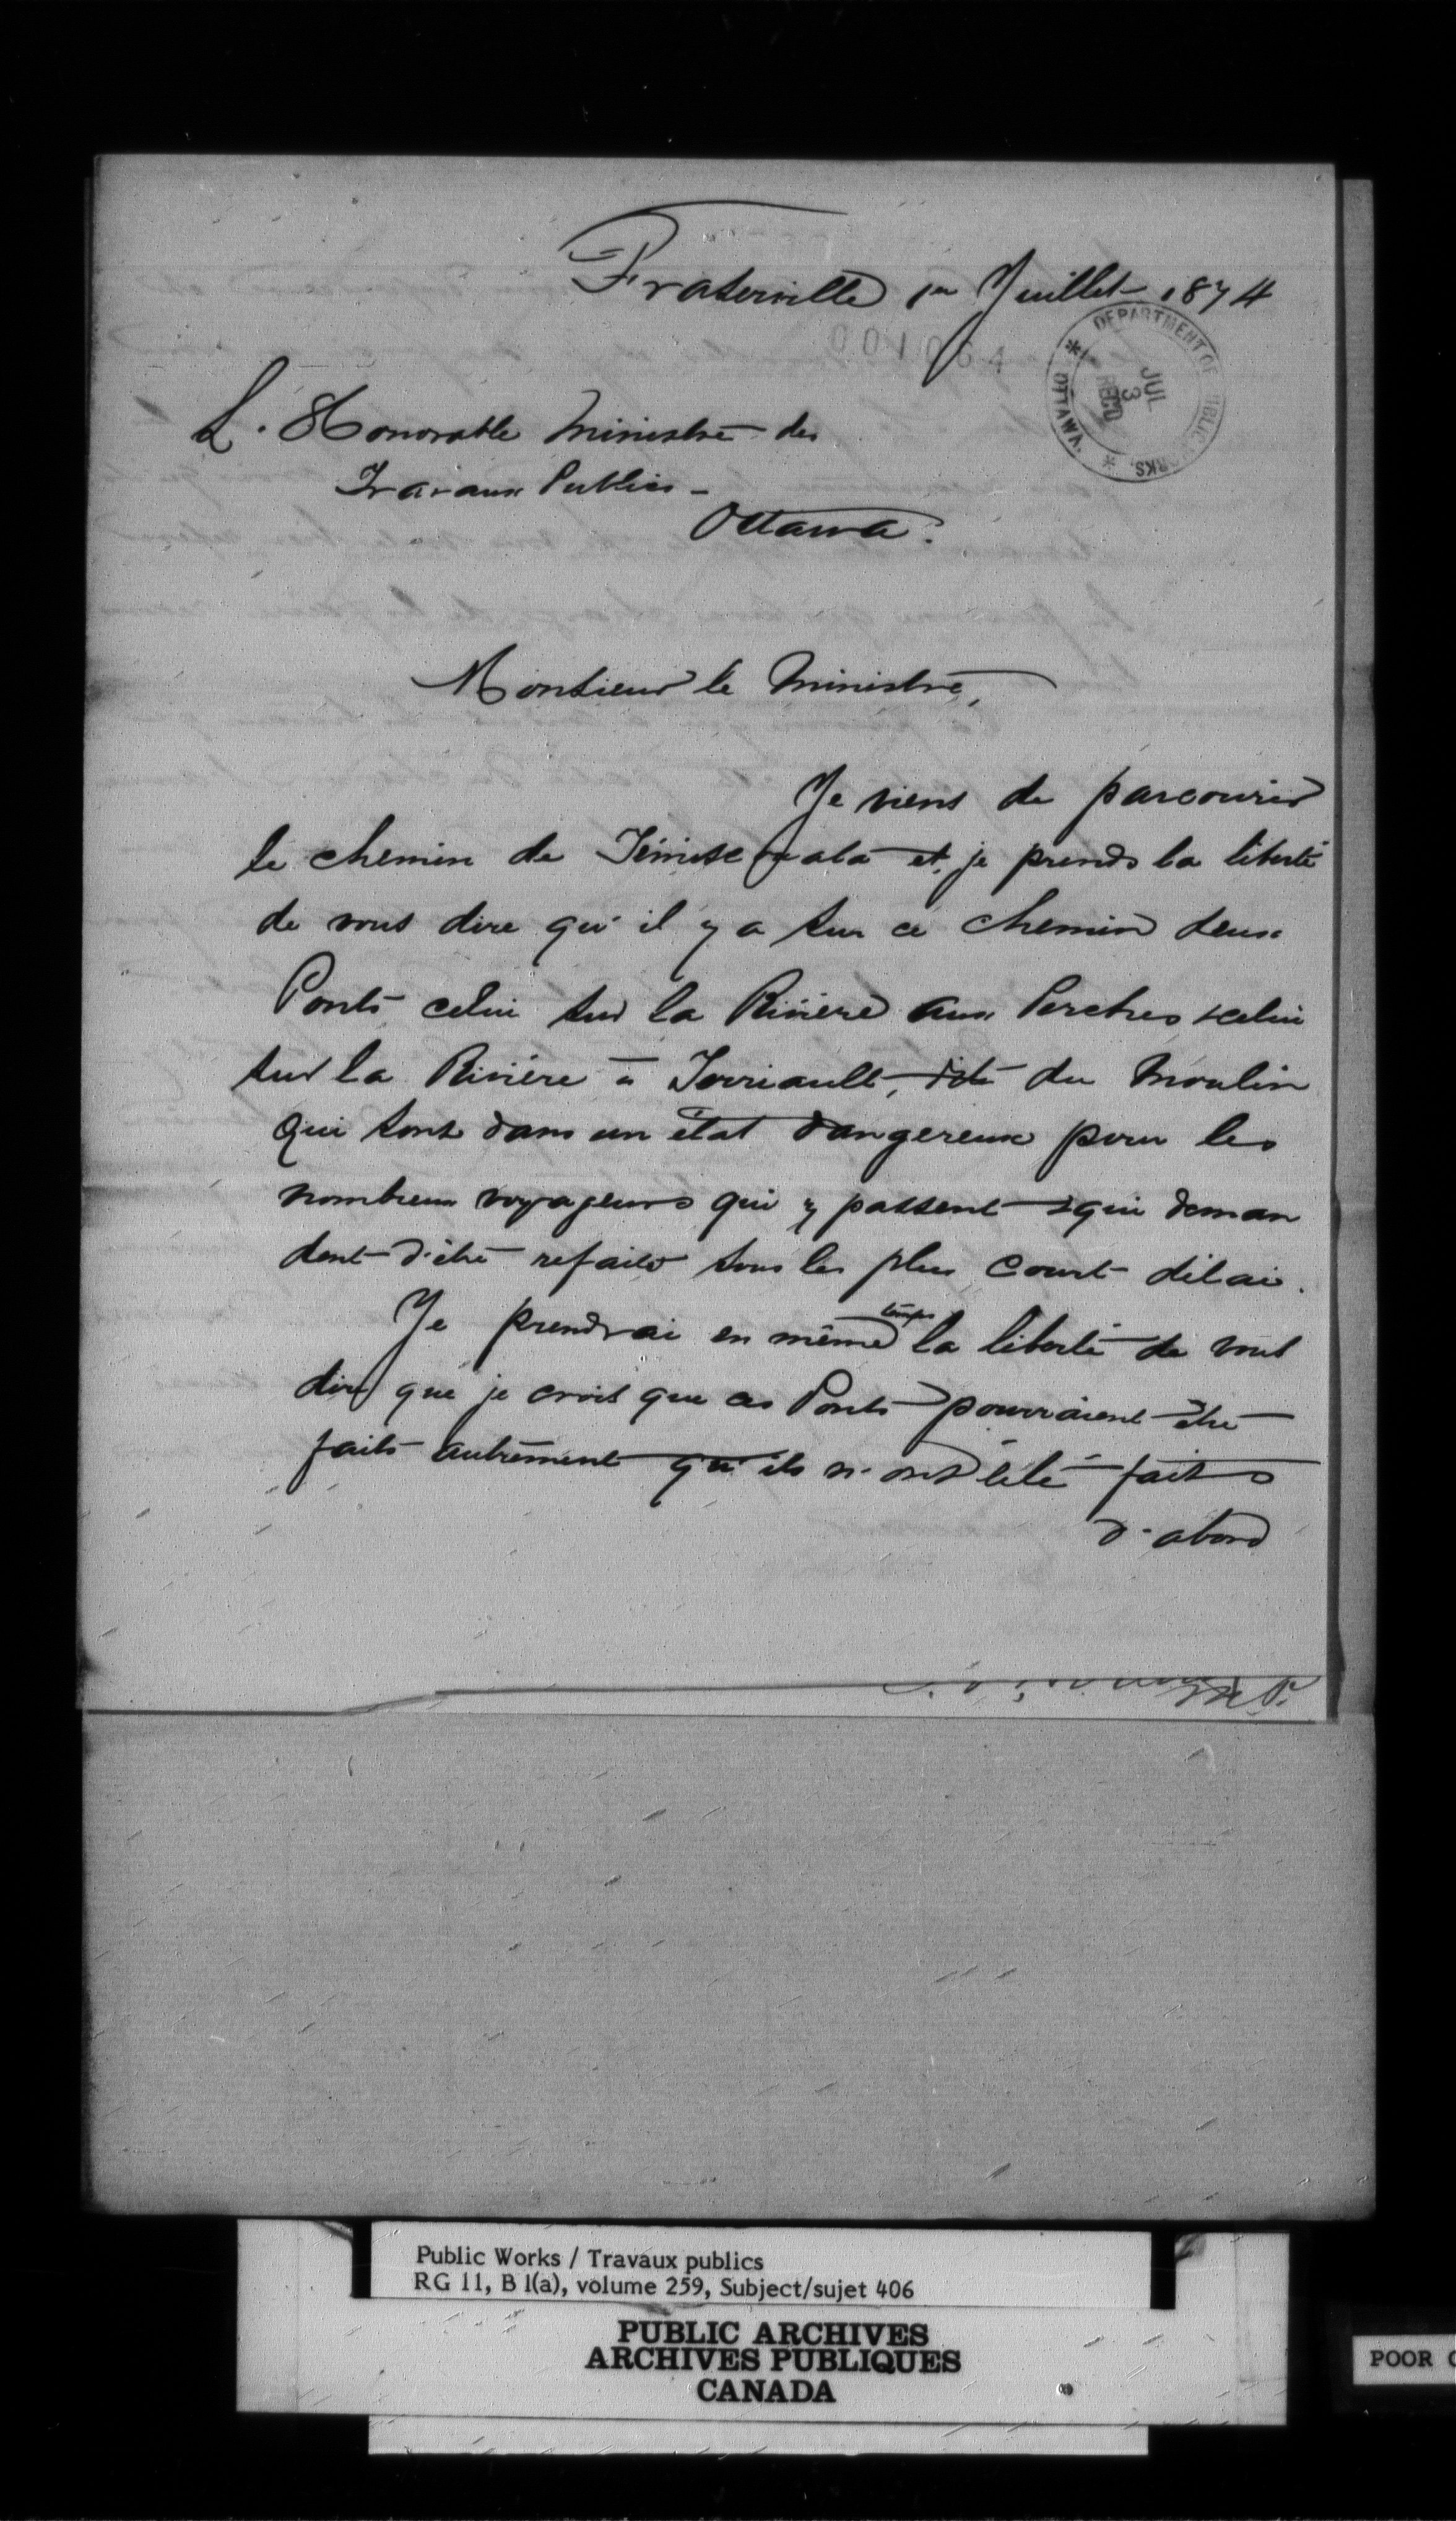 Fraserville 1er Juillet 1874
001064
DEPARTMENT OF PUBLIC WORKS, * OTTAWA *
JUL
3
REC'D
L'Honorable Ministre des
Travaux Publics -
Ottawa.
Monsieur le Ministre,
Je viens de parcourir
le chemin de Témiscouata et je prends la liberté
de vous dire qu'il y a sur ce chemin deux
Ponts celui sur la Rivière aux Perches & celui
sur la Rivière à Terriault, dite du Moulin
qui sont dans un état dangereux pour les
nombreux voyageurs qui y passent & qui deman
dent d'être refaits sous les plus court délai.
Je prendrai en même temps la liberté de vous
dire que je crois que ces Ponts pourraient être
faits autrement qu'ils n'ont été faits
d'abord
Public Works / Travaux publics
RG 11, B 1(a), volume 259, Subject/sujet 406
PUBLIC ARCHIVES
ARCHIVES PUBLIQUES
CANADA
POOR